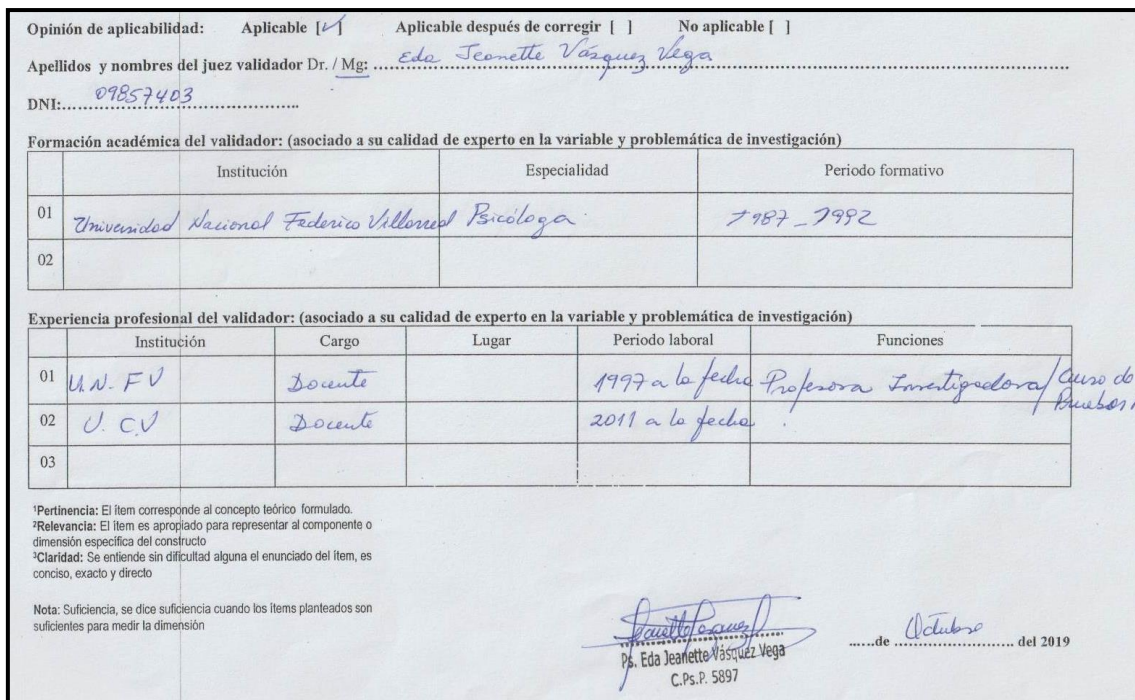 Opinión de aplicabilidad: Aplicable [✓] Aplicable después de corregir [ ] No aplicable [ ]
Apellidos y nombres del juez validador Dr. / Mg: Eda Jeanette Vásquez Vega
DNI: 09857403
Formación académica del validador: (asociado a su calidad de experto en la variable y problemática de investigación)
Institución Especialidad Periodo formativo
01 Universidad Nacional Federico Villarreal Psicóloga 1987_1992
02
Experiencia profesional del validador: (asociado a su calidad de experto en la variable y problemática de investigación)
Institución Cargo Lugar Periodo laboral Funciones
01 U.N. FV Docente 1997 a la fecha Profesora Investigadora/ Curso de
Pruebas
02 U. CV Docente 2011 a la fecha
03
¹Pertinencia: El ítem corresponde al concepto teórico formulado.
²Relevancia: El ítem es apropiado para representar al componente o
dimensión específica del constructo
³Claridad: Se entiende sin dificultad alguna el enunciado del ítem, es
conciso, exacto y directo
Nota: Suficiencia, se dice suficiencia cuando los ítems planteados son
suficientes para medir la dimensión
Ps. Eda Jeanette Vásquez Vega
C.Ps.P. 5897
......de Octubre del 2019